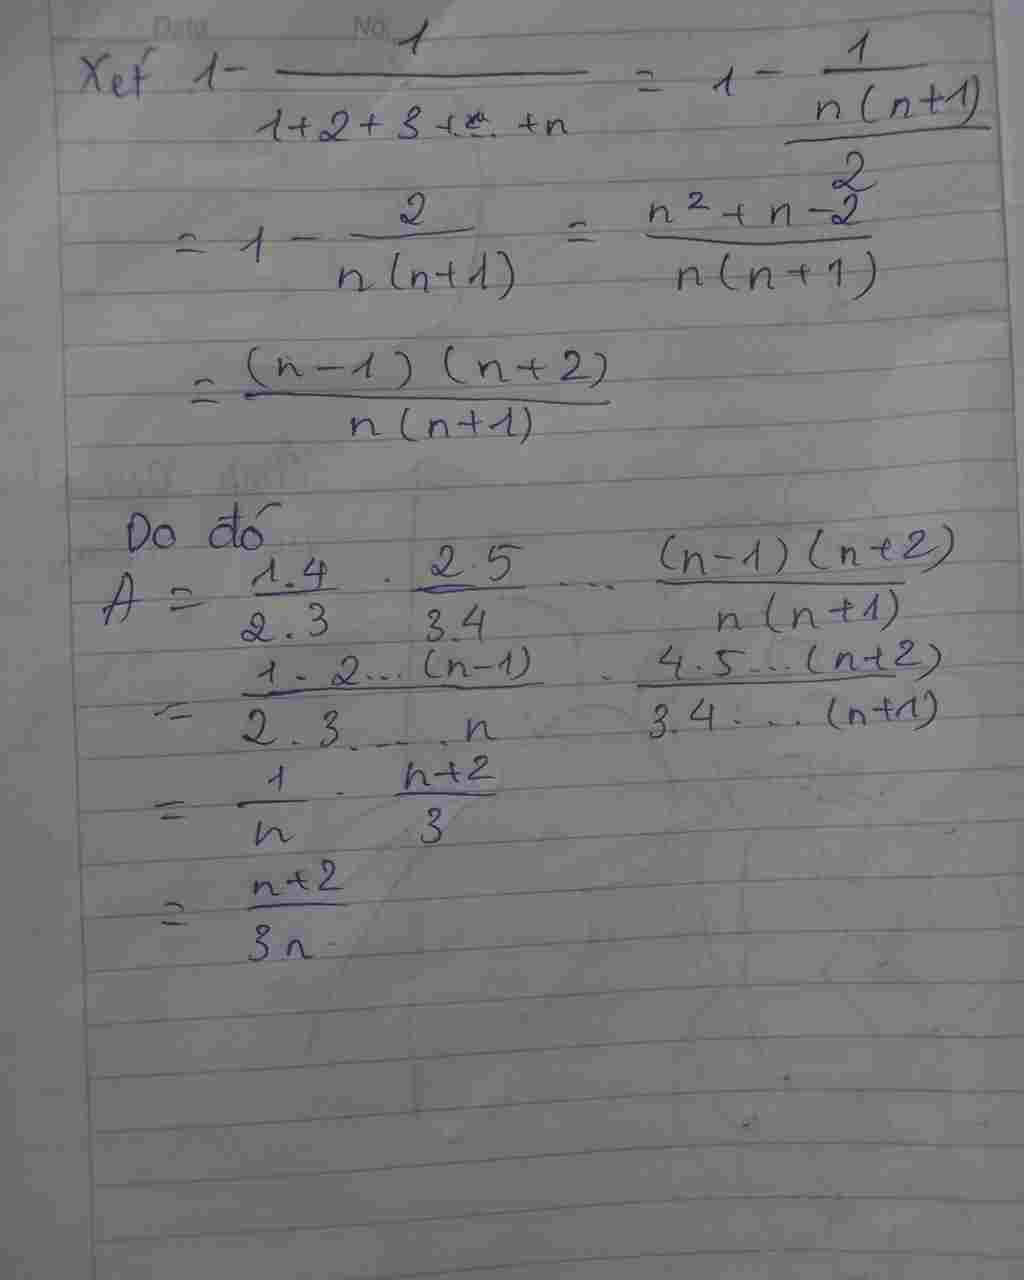 Data No.
Xét 1 - 1/(1+2+3+...+n) = 1 - 1/(n(n+1)/2)
= 1 - 2/(n(n+1)) = (n² + n - 2)/(n(n+1))
= ((n-1)(n+2))/(n(n+1))
Do đó
A = (1.4)/(2.3) . (2.5)/(3.4) ... ((n-1)(n+2))/(n(n+1))
= (1.2...(n-1))/(2.3.....n) . (4.5...(n+2))/(3.4....(n+1))
= 1/n . (n+2)/3
= (n+2)/(3n)